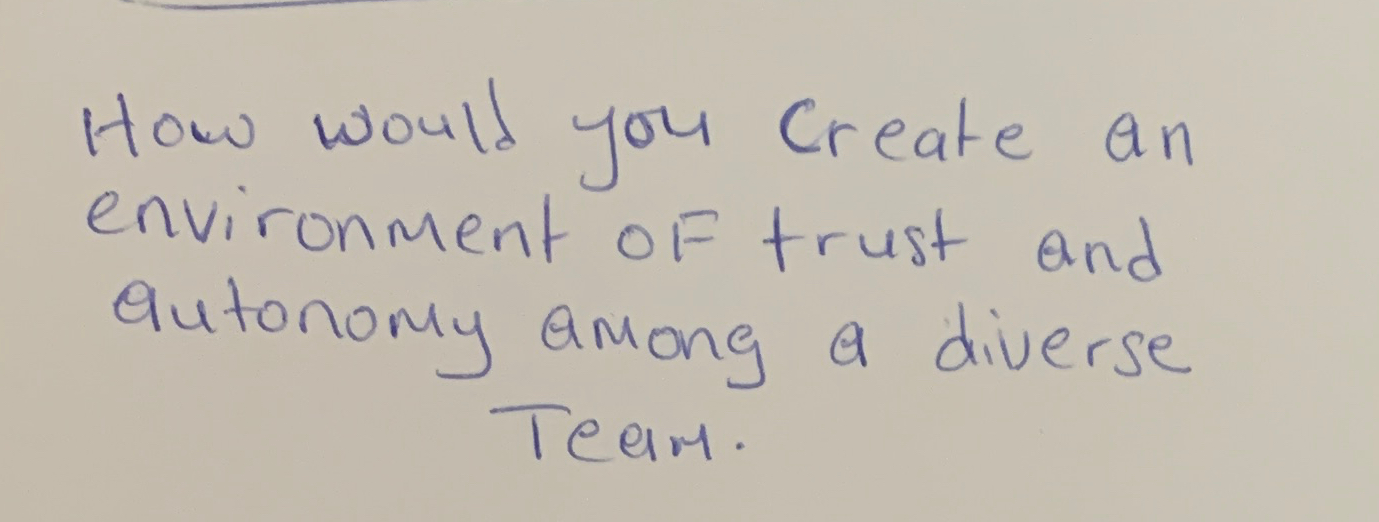 How would you Create an
environment of trust and
autonomy among a diverse
Team.